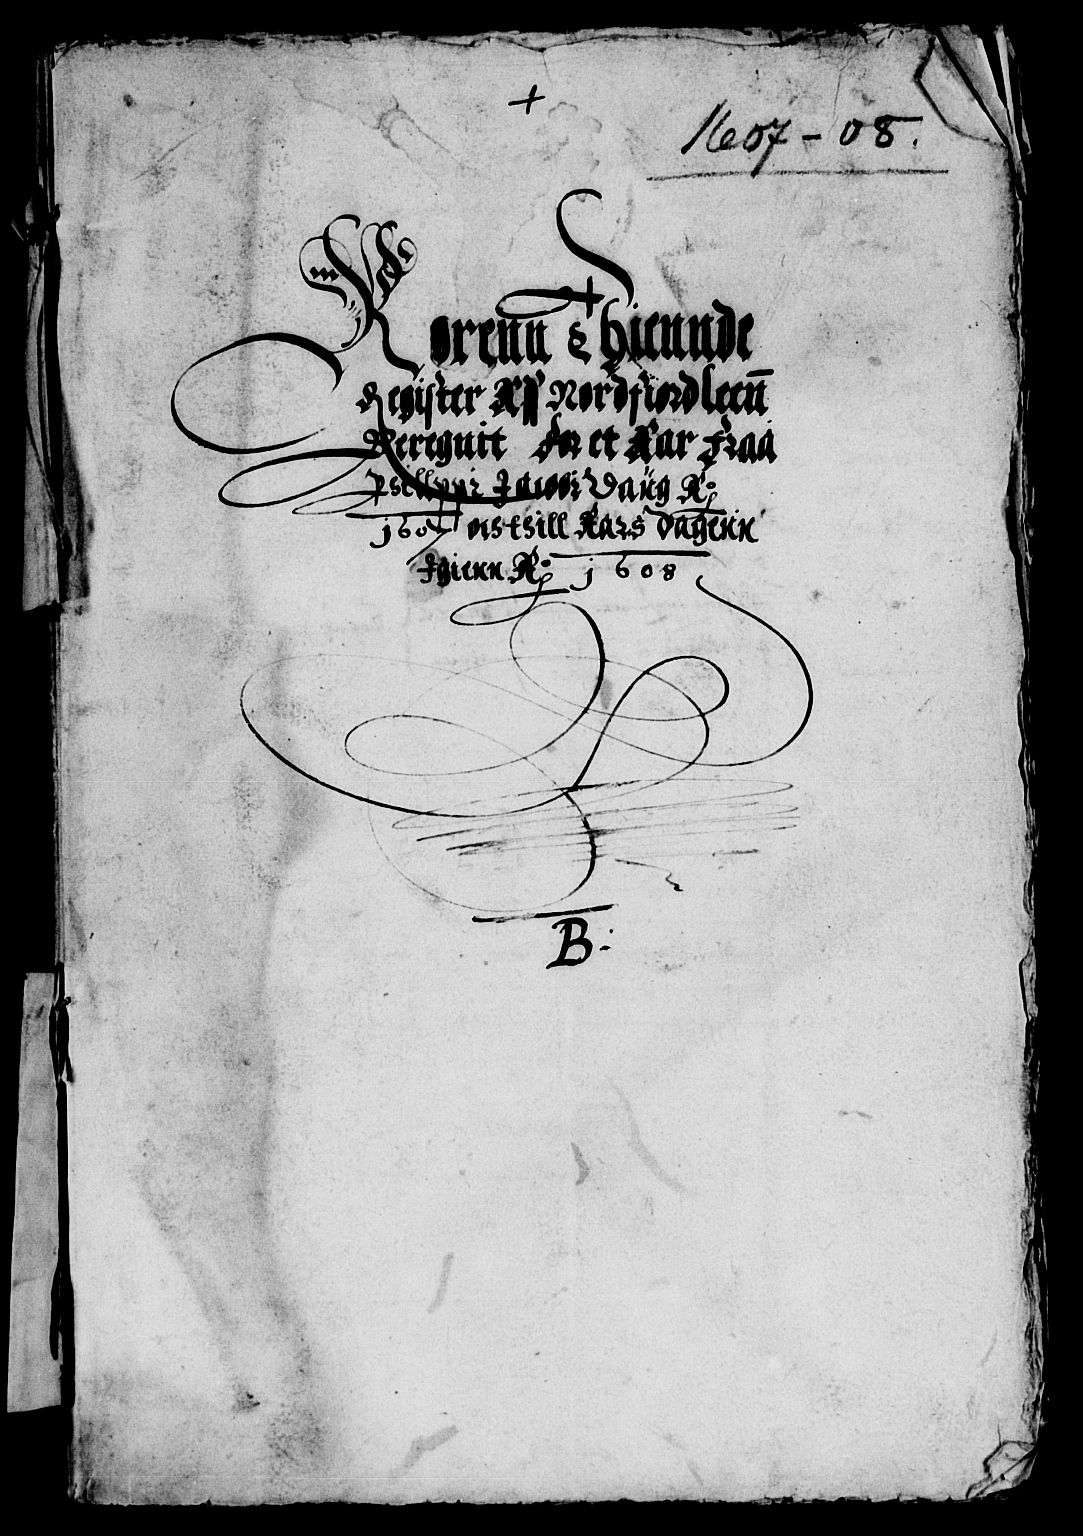 1607 - 08.
Korenn Thiennde
Register Aff Nordfiord leenn
Beregnit for et Aar Fraa
Phillippi Jacobi Daug Ao
1607 och thill Aars dagenn
Igienn Ao 1608
B.